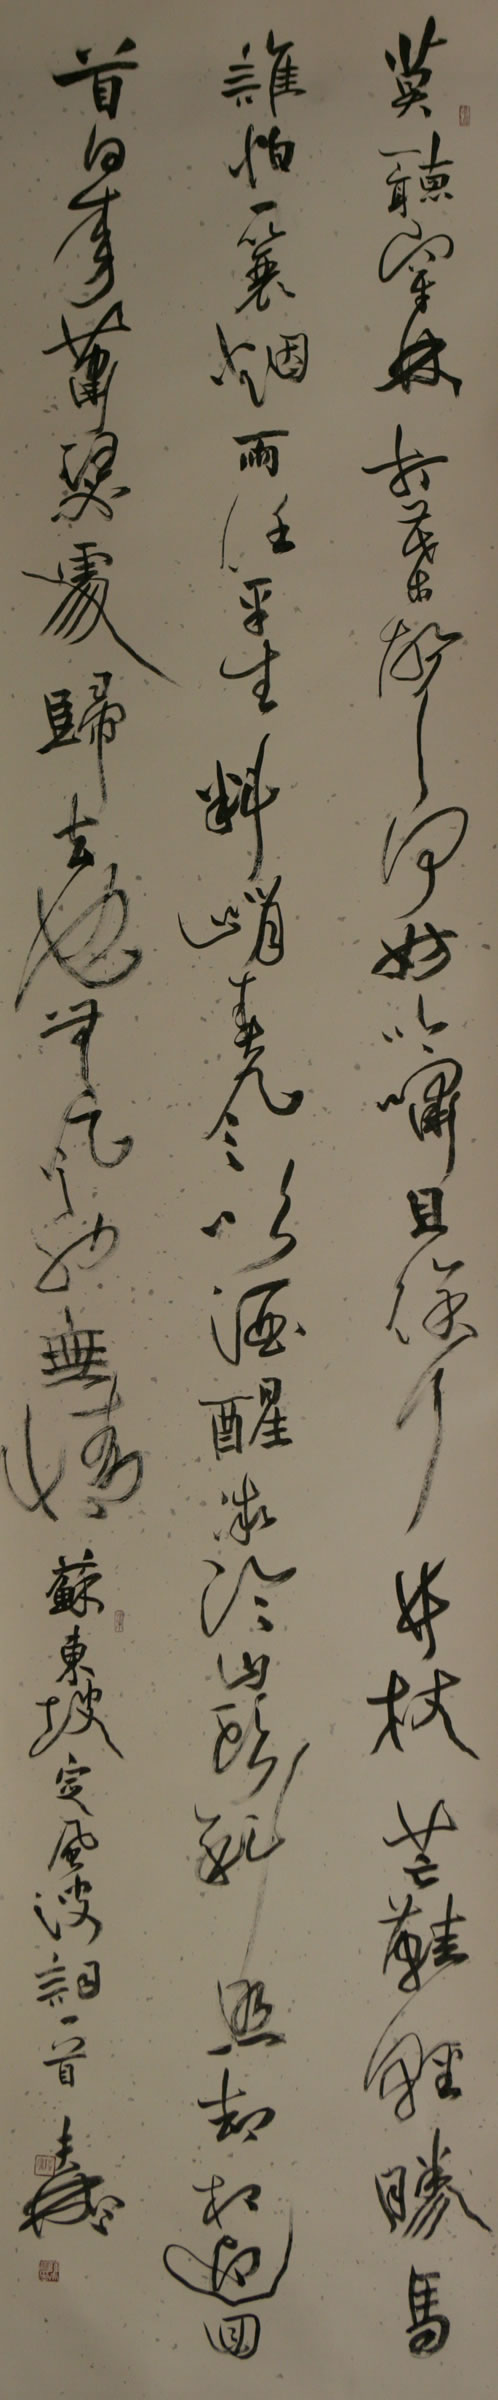 莫聽穿林打葉聲何妨吟嘯且徐行竹杖芒鞋輕勝馬
誰怕一蓑烟雨任平生料峭春風吹酒醒微冷山頭斜照却相迎回
首向來蕭瑟處歸去也無風雨也無晴蘇東坡定風波詞一首